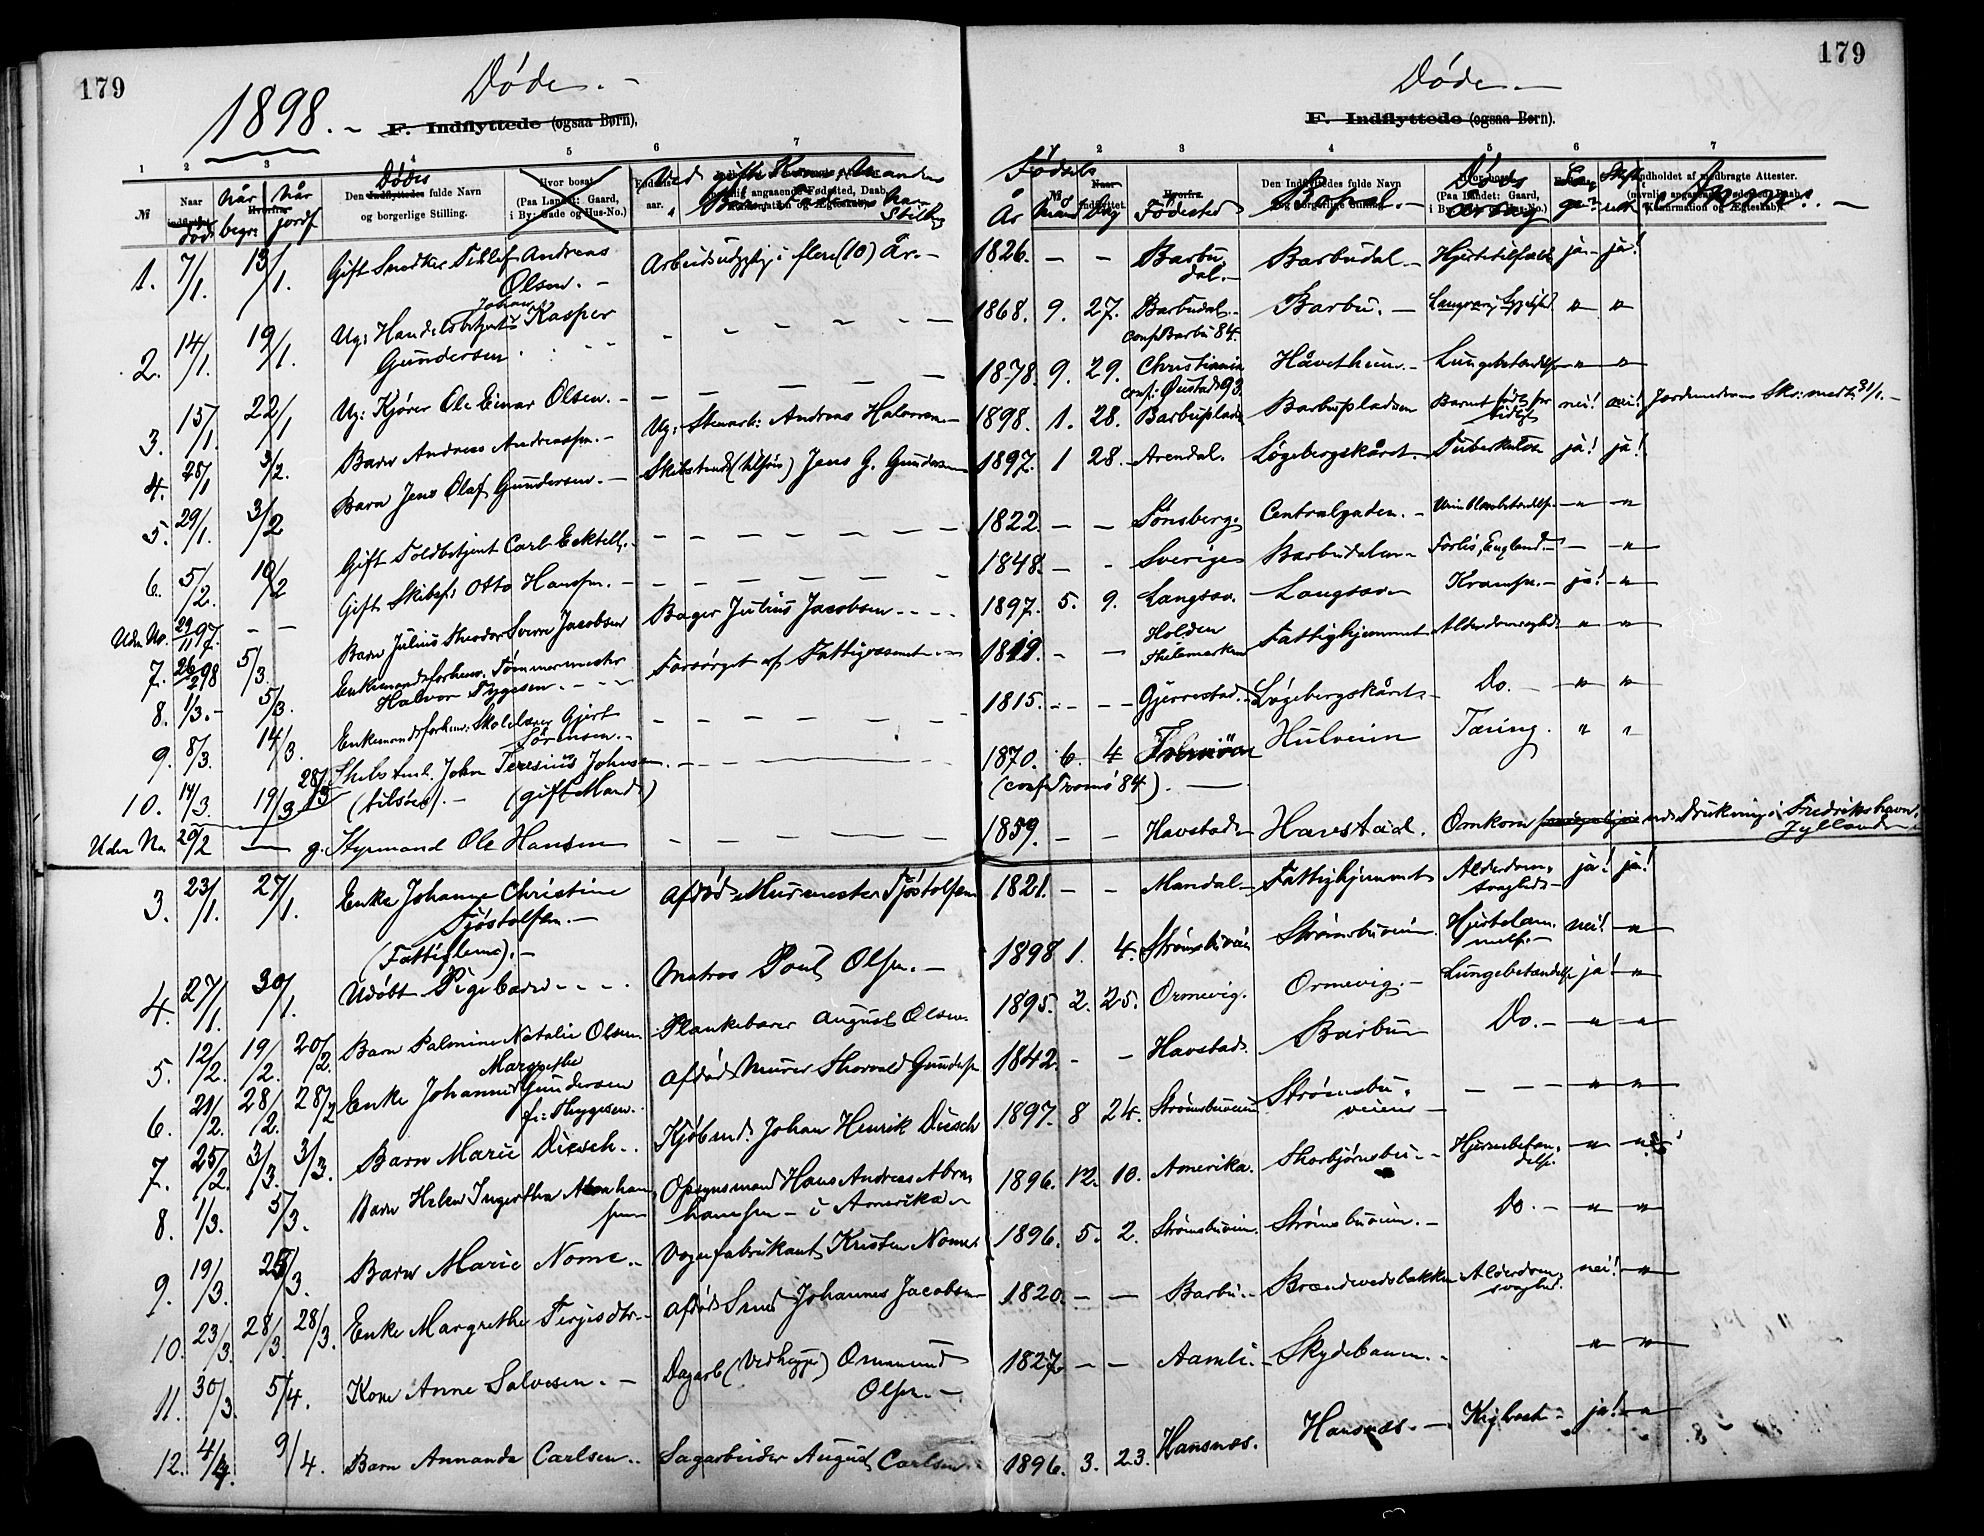 179
1898.
Døde.
F. Indflyttede (ogsaa Børn).
1 2 3 5 6 7
№
Naar
død
Når
begr:
Når
jordf
Dødes
Den fulde Navn
og borgerlige Stilling.
Hvor bosat
(Paa Landet: Gaard,
i By: Gade og Hus-No.)
Ved gifte Koner Mandens
Stilling
1. 7/1. 13/1. Gift Snedker Tellef Andreas Arbeidsudygtig i flere (10) År. –
Olsen. –
2. 14/1. 19/1. Ug: Handelsbetjent Johan Kasper
Gundersen.
3. 15/1. 22/1 Ug: Kjører Ole Einar Olsen. –
4. 28/1 3/2. Barn Andreas Andreassen. – Ug: Stenarb: Andreas Halvorsen
5. 29/1. 3/2 Barn Jens Olaf Gundersen. – Skibstømd (tilsjøs) Jens G. Gundersen
6. 5/2. 10/2 Gift Toldbetjent Carl Ecktell.
Uden No. 29/11 97. – – Gift Skibsf: Otto Hansen. –
7. 26/2 98 5/3. Barn Julius Theodor Sverre Jacobsen Bager Julius Jacobsen
8. 1/3. – 5/3. Enkemand forhenv. Tømmermester Forsörget af Fattigvæsenet. –
Halvor Tygesen.
9. 8/3. 14/3. Enkemand forhenv: Skolelærer Gjert
Sörensen. –
10. 14/3. 19/3 28/3 Skibstml. John Teresius Johnsen.
(tilsöes). – (gift Mand)
Uden No. 20/2 — g. Styrmand Ole Hansen
3. 23/1. 27/1. Enke Johanne Christine Afdöd Murmester Tjöstolfsen
Tjöstolfsen. –
(Fattiglem). –
4. 27/1. 30/1. Udöbt Pigebarn Matros Poul Olsen. –
5. 12/2. 19/2. 20/2. Barn Palmine Natalie Olsen. Plankebærer August Olsen.
6. 21/2. 28/2. 28/2 Enke Johanne Margrethe Gundersen Afdöd Murer Thorvald Gundersen
f: Thygesen.
7. 25/2. 3/3. 3/3. Barn Marie Diesch. Kjöbmd. Johan Henrik Diesch
8. 1/3. 5/3. Barn Helen Ingerthea Abraham- Opsynsmand Hans Andreas Abra-
sen hamsen – i Amerika
9. 19/3. 25/3. Barn Marie Nome. – Vognfabrikant Kristen Nome
10. 23/3. 28/3. 28/3. Enke Margrethe Terjesdtr. Afdöd Smed Johannes Jacobsen
11. 30/3. 5/4. Kone Anne Salvesen. – Dagarb (Vedhugger) Ommund
Olsen. –
12. 4/4. 9/4. Barn Amanda Carlsen. Sagarbeider August Carlsen.
179
Døde.
F. Indflyttede (ogsaa Børn).
2 3 4 5 6 7
Fødsels
År Måned Dag Fødested Bopæl. Døds
årsag
1826. – – Barbudal. – Barbudal – Hjertetilfælde ja – ja!
1868. 9. 27. Barbudal. – Barbu. – Langvarig Sygdom " "
conf Barbu 84.
1878. 9. 29. Christiania Håvetheien. – Lungebetændelse " "
conf: Øiestad 93.
1898. 1. 28. Barbupladsen Barbupladsen Barnet født for tidlig nei! nei! Jordemoderens Skr: medt: 31/1. –
1897. 1 28. Arendal. Løgebergskåret. Tuberkulose ja! ja!
1822. – – Tönsberg. Centralgaden. –
1848. – – Sverige Barbudalen – Forlis, England. – "
1897. 5. 9. Langsæv. Langsæv – Krampe. – ja! "
1819. – – Holden Thelemarken Fattighjemmet Alderdomssvaghed " "
1815. – – Gjerrestad. – Løgebergskåret – Do. – " "
1870. 6. 4 Tromöen Hulveien Tæring. " "
(conf Tromö 84). –
1859. – – Havstad. Havstad. Omkom ved Drukning i Fredrikshavn,
Jylland
1821. – – Mandal – Fattighjemmet Alderdoms- ja! ja!
svaghed –
1898 1. 4. Strömsbuveien Strömsbuveien Hjertelam- nei! "
melse. –
1895. 2. 25. Ormevig. Ormevig. – Lungebetændelse ja! "
1842. – – Havstad. Barbu Do. – " "
1897. 8 24. Strömsbuveien Strömsbu- – – " "
veien –
1896. 12. 10. Amerika. Thorbjörnsbu. – Hjernebetæn- " "
delse
1896. 5. 2. Strömsbuveien. Strömsbuveien. – Do. – " "
1820. – – Barbu. – Brændevedsbakken Alderdoms- nei! "
svaghed.
1827 – – Aamli. – Skydebanen. – " "
1896. 3. 23. Hansnæs. Hansnæs. – Kighoste – ja! "